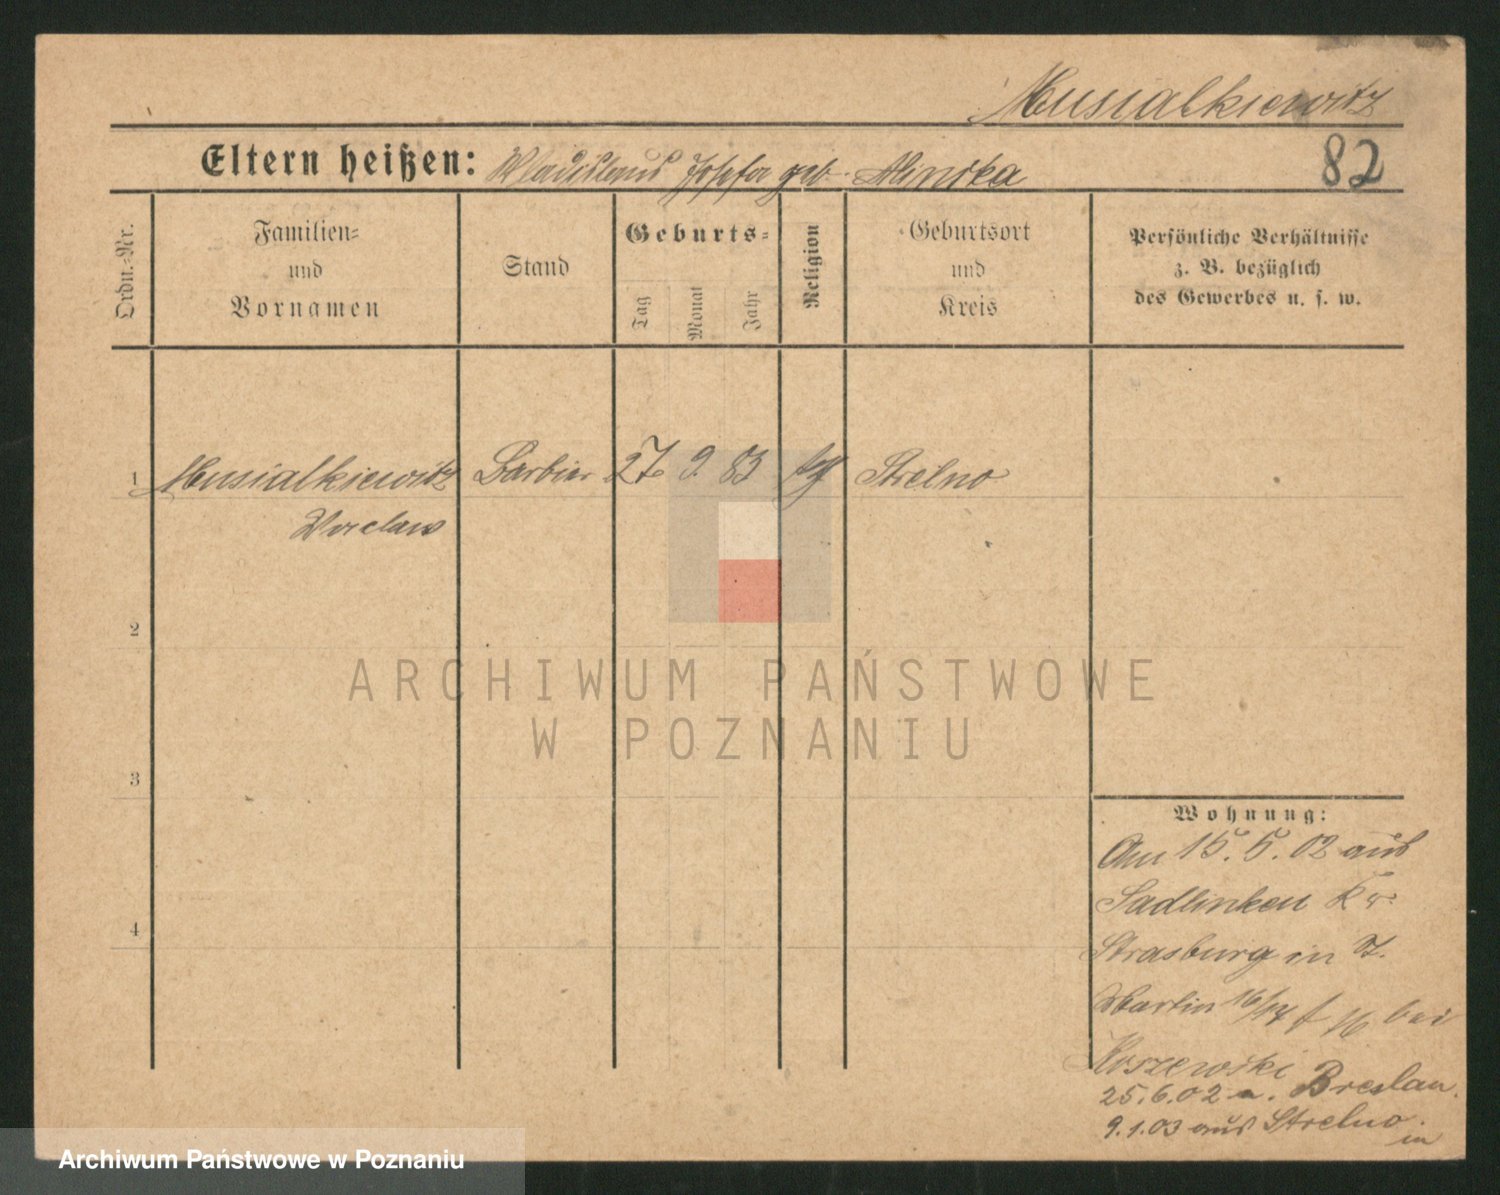 Musialkiewitz
82
Eltern heißen: Wladislaus Josefa geb.
Ordn.-Nr.
Familien-
und
Vornamen
Stand
Geburts-
Tag
Monat
Jahr
Religion
Geburtsort
und
Kreis
Persönliche Verhältnisse
z. B. bezüglich
des Gewerbes u. s. w.
1 Musialkiewitz Barbier 27 9. 83 Strelno
Waclaw
2
3
4
Wohnung:
Am 15. 5. 02 aus
Sadlinken Kr.
Strasburg in St.
Martin 16/17 bei
Koszewski
25.6.02 n. Breslau.
9.1.03 aus Strelno.
in
ARCHIWUM PAŃSTWOWE
W POZNANIU
Archiwum Państwowe w Poznaniu